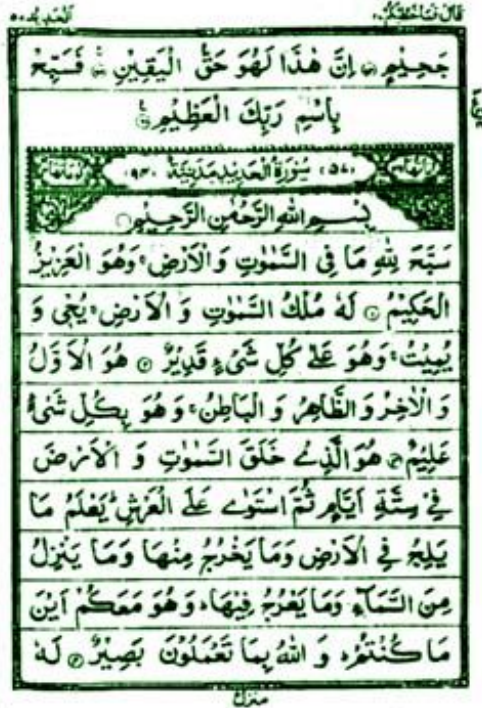 قَالَ فَمَا خَطْبُكُمْ ٢٧ الْحَدِيْد ٥٧
جَحِيْمٍ ۞ اِنَّ هٰذَا لَهُوَ حَقُّ الْيَقِيْنِ ۞ فَسَبِّحْ
بِاسْمِ رَبِّكَ الْعَظِيْمِ ۞
سُوْرَةُ الْحَدِيْدِ مَدَنِيَّةٌ
بِسْمِ اللهِ الرَّحْمٰنِ الرَّحِيْمِ
سَبَّحَ لِلّٰهِ مَا فِى السَّمٰوٰتِ وَ الْاَرْضِ ۚ وَهُوَ الْعَزِيْزُ
الْحَكِيْمُ ۞ لَهٗ مُلْكُ السَّمٰوٰتِ وَ الْاَرْضِ ۚ يُحْيٖ وَ
يُمِيْتُ ۚ وَهُوَ عَلٰى كُلِّ شَىْءٍ قَدِيْرٌ ۞ هُوَ الْاَوَّلُ
وَ الْاٰخِرُ وَ الظَّاهِرُ وَ الْبَاطِنُ ۚ وَ هُوَ بِكُلِّ شَىْءٍ
عَلِيْمٌ ۞ هُوَ الَّذِىْ خَلَقَ السَّمٰوٰتِ وَ الْاَرْضَ
فِىْ سِتَّةِ اَيَّامٍ ثُمَّ اسْتَوٰى عَلَى الْعَرْشِ ؕ يَعْلَمُ مَا
يَلِجُ فِى الْاَرْضِ وَمَا يَخْرُجُ مِنْهَا وَمَا يَنْزِلُ
مِنَ السَّمَآءِ وَمَا يَعْرُجُ فِيْهَا ؕ وَ هُوَ مَعَكُمْ اَيْنَ
مَا كُنْتُمْ ؕ وَ اللهُ بِمَا تَعْمَلُوْنَ بَصِيْرٌ ۞ لَهٗ
منزل